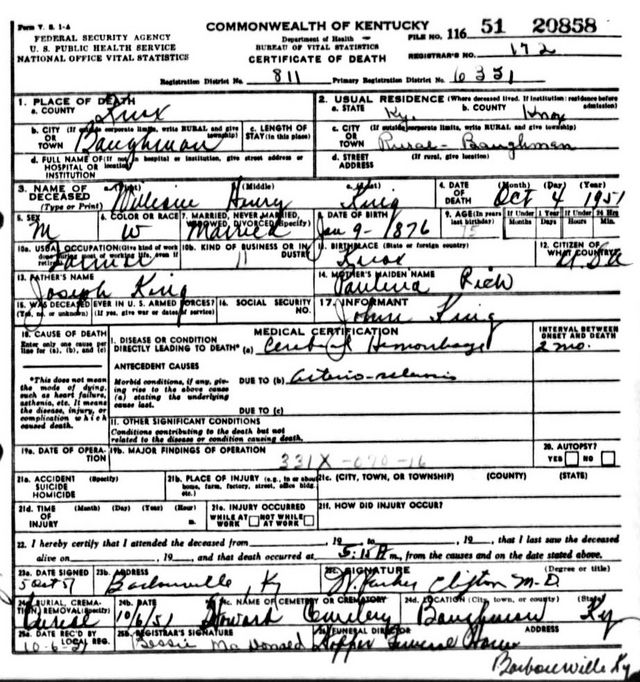 Form V. S. 1-A
COMMONWEALTH OF KENTUCKY
FILE NO. 116 51 20858
FEDERAL SECURITY AGENCY
U. S. PUBLIC HEALTH SERVICE
NATIONAL OFFICE VITAL STATISTICS
Department of Health
BUREAU OF VITAL STATISTICS
CERTIFICATE OF DEATH
REGISTRAR'S NO. 172
Registration District No. 811 Primary Registration District No. 6351
1. PLACE OF DEATH
a. COUNTY Knox
2. USUAL RESIDENCE (Where deceased lived. If institution: residence before admission)
a. STATE Ky. b. COUNTY Knox
b. CITY (If outside corporate limits, write RURAL and give township) OR TOWN Baughman
c. LENGTH OF STAY (in this place)
c. CITY (If outside corporate limits, write RURAL and give township) OR TOWN Rural- Baughman
d. FULL NAME OF (If not in hospital or institution, give street address or location) HOSPITAL OR INSTITUTION
d. STREET ADDRESS (If rural, give location)
3. NAME OF DECEASED (Type or Print) William (Middle) Henry King
4. DATE OF DEATH (Month) (Day) (Year) Oct 4 1951
5. SEX M
6. COLOR OR RACE W
7. MARRIED, NEVER MARRIED, WIDOWED, DIVORCED (Specify) Married
8. DATE OF BIRTH Jan 9- 1876
9. AGE (In years last birthday) 75 If Under 1 Year Months Days If Under 24 Hrs Hours Min.
10a. USUAL OCCUPATION (Give kind of work done during most of working life, even if retired) Farmer
10b. KIND OF BUSINESS OR INDUSTRY
11. BIRTHPLACE (State or foreign country) Knox
12. CITIZEN OF WHAT COUNTRY? USA
13. FATHER'S NAME Joseph King
14. MOTHER'S MAIDEN NAME Paulina Rich
15. WAS DECEASED EVER IN U. S. ARMED FORCES? (Yes, no, or unknown) (If yes, give war or dates of service)
16. SOCIAL SECURITY NO.
17. INFORMANT John King
18. CAUSE OF DEATH
Enter only one cause per line for (a), (b), and (c)
MEDICAL CERTIFICATION
INTERVAL BETWEEN ONSET AND DEATH
I. DISEASE OR CONDITION DIRECTLY LEADING TO DEATH* (a) Cerebral Hemorrhage 2 mo.
*This does not mean the mode of dying, such as heart failure, asthenia, etc. It means the disease, injury, or complication which caused death.
ANTECEDENT CAUSES
Morbid conditions, if any, giving rise to the above cause (a) stating the underlying cause last.
DUE TO (b)
DUE TO (c)
II. OTHER SIGNIFICANT CONDITIONS
Conditions contributing to the death but not related to the disease or condition causing death.
19a. DATE OF OPERATION
19b. MAJOR FINDINGS OF OPERATION
331X -070-16
20. AUTOPSY? YES NO
21a. ACCIDENT SUICIDE HOMICIDE (Specify)
21b. PLACE OF INJURY (e.g., in or about home, farm, factory, street, office bldg. etc.)
21c. (CITY, TOWN, OR TOWNSHIP) (COUNTY) (STATE)
21d. TIME OF INJURY (Month) (Day) (Year) (Hour) m.
21e. INJURY OCCURRED WHILE AT WORK NOT WHILE AT WORK
21f. HOW DID INJURY OCCUR?
22. I hereby certify that I attended the deceased from , 19 to , 19 , that I last saw the deceased
alive on , 19 , and that death occurred at m., from the causes and on the date stated above.
23a. DATE SIGNED 5 Oct 51
23b. ADDRESS Barbourville, Ky
23c. SIGNATURE Clifton M-D. (Degree or title)
24a. BURIAL, CREMATION, REMOVAL (Specify) Burial
24b. DATE 10/6/51
24c. NAME OF CEMETERY OR CREMATORY Howard Cemetery
24d. LOCATION (City, town, or county) (State) Baughman Ky
25a. DATE REC'D BY LOCAL REG. 10-6-51
25b. REGISTRAR'S SIGNATURE Bessie McDonald
26. FUNERAL DIRECTOR Hopper Funeral Home
ADDRESS
Barbourville Ky